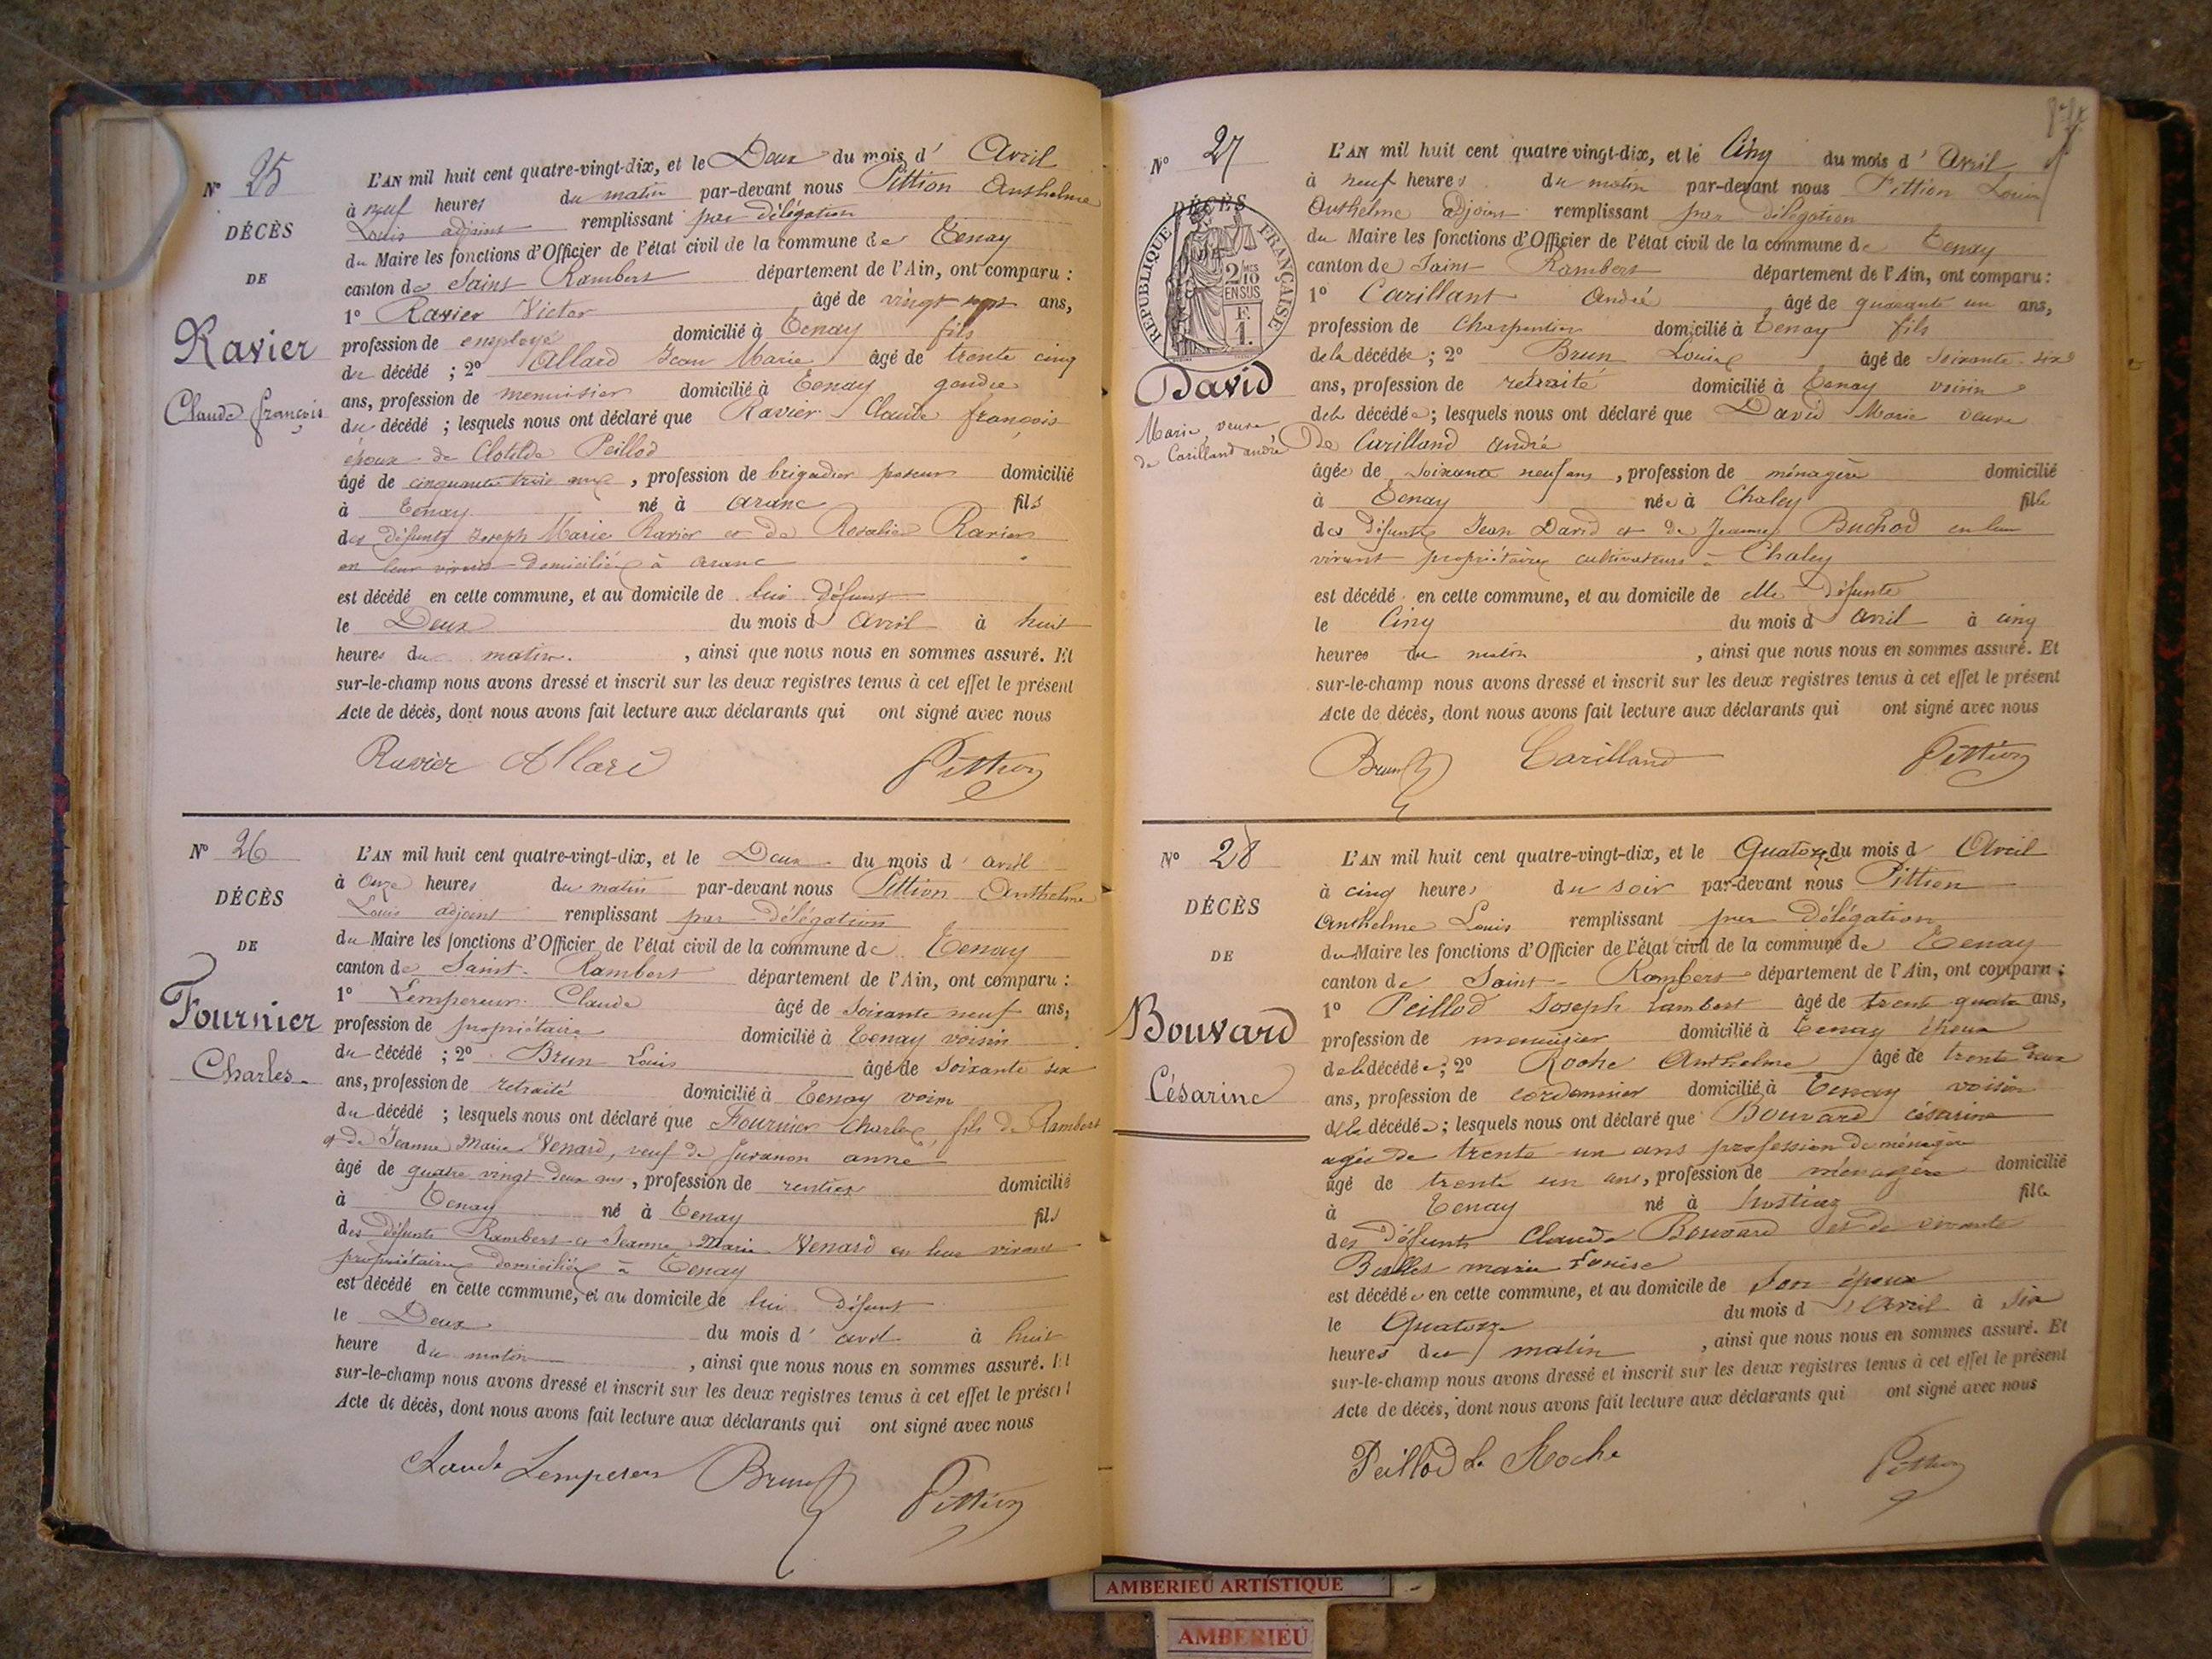 N° 25
DÉCÈS
DE
Ravier
Claude françois
L'AN mil huit cent quatre-vingt-dix, et le Deux du mois d' Avril
à neuf heures du matin par-devant nous Pittion Anthelme
Louis adjoint remplissant par délégation
du Maire les fonctions d'Officier de l'état civil de la commune de Tenay
canton de Saint Rambert département de l'Ain, ont comparu :
1° Ravier Victor âgé de vingt sept ans,
profession de employé domicilié à Tenay fils
du décédé ; 2° Allard Jean Marie âgé de trente cinq
ans, profession de menuisier domicilié à Tenay gendre
du décédé ; lesquels nous ont déclaré que Ravier Claude françois
époux de Clotilde Peillod
âgé de cinquante trois ans, profession de brigadier poseur domicilié
à Tenay né à aranc fils
des défunts Joseph Marie Ravier et de Rosalie Ravier
en leur vivant domiciliés à aranc
est décédé en cette commune, et au domicile de lui défunt
le Deux du mois d avril à huit
heures du matin. , ainsi que nous nous en sommes assuré. Et
sur-le-champ nous avons dressé et inscrit sur les deux registres tenus à cet effet le présent
Acte de décès, dont nous avons fait lecture aux déclarants qui ont signé avec nous
Ravier Allard Pittion
N° 26
DÉCÈS
DE
Fournier
Charles
L'AN mil huit cent quatre-vingt-dix, et le Deux du mois d' avril
à onze heures du matin par-devant nous Pittion Anthelme
Louis adjoint remplissant par délégation
du Maire les fonctions d'Officier de l'état civil de la commune de Tenay
canton de Saint-Rambert département de l'Ain, ont comparu :
1° Lempereur Claude âgé de soixante neuf ans,
profession de propriétaire domicilié à Tenay voisin
du décédé ; 2° Brun Louis âgé de soixante six
ans, profession de retraité domicilié à Tenay voisin
du décédé ; lesquels nous ont déclaré que Fournier Charles, fils de Rambert
et de Jeanne Marie Venard, veuf de Juvanon anne
âgé de quatre vingt deux ans, profession de rentier domicilié
à Tenay né à Tenay fils
des défunts Rambert et Jeanne Marie Venard en leur vivant
propriétaires domiciliés à Tenay
est décédé en cette commune, et au domicile de lui défunt
le Deux du mois d' avril à huit
heure du matin , ainsi que nous nous en sommes assuré. Et
sur-le-champ nous avons dressé et inscrit sur les deux registres tenus à cet effet le présent
Acte de décès, dont nous avons fait lecture aux déclarants qui ont signé avec nous
Claude Lempereur Brun Pittion
N° 27
DÉCÈS
RÉPUBLIQUE FRANÇAISE
2/10 MES
EN SUS
F.
1.
David
Marie, veuve
de Carilland andré
L'AN mil huit cent quatre vingt-dix, et le Cinq du mois d' Avril
à neuf heures du matin par-devant nous Pittion Louis
Anthelme adjoint remplissant par délégation
du Maire les fonctions d'Officier de l'état civil de la commune de Tenay
canton de Saint Rambert département de l'Ain, ont comparu :
1° Carillant André âgé de quarante un ans,
profession de Charpentier domicilié à Tenay fils
de la décédée ; 2° Brun Louis âgé de soixante-six
ans, profession de retraité domicilié à Tenay voisin
de la décédée ; lesquels nous ont déclaré que David Marie veuve
De Carilland andré
âgée de soixante neuf ans, profession de ménagère domicilié
à Tenay née à Chaley fille
des défunts Jean David et de Jeanne Buchod en leur
vivant propriétaires cultivateurs à Chaley
est décédé en cette commune, et au domicile de elle défunte
le Cinq du mois d avril à cinq
heures du matin , ainsi que nous nous en sommes assuré. Et
sur-le-champ nous avons dressé et inscrit sur les deux registres tenus à cet effet le présent
Acte de décès, dont nous avons fait lecture aux déclarants qui ont signé avec nous
Brun Carilland Pittion
N° 28
DÉCÈS
DE
Bouvard
Césarine
L'AN mil huit cent quatre-vingt-dix, et le Quatorze du mois d Avril
à cinq heures du soir par-devant nous Pittion
Anthelme Louis remplissant par délégation
du Maire les fonctions d'Officier de l'état civil de la commune de Tenay
canton de Saint-Rambert département de l'Ain, ont comparu :
1° Peillod Joseph Lambert âgé de trente quatre ans,
profession de menuisier domicilié à Tenay époux
de la décédée ; 2° Roche Anthelme âgé de trente deux
ans, profession de cordonnier domicilié à Tenay voisin
de la décédée ; lesquels nous ont déclaré que Bouvard césarine
agée de trente-un ans profession de ménagère
âgé de trente un ans, profession de ménagère domicilié
à Tenay né à hostiaz fille
des défunts Claude Bouvard et de vivante
marie Louise
est décédée en cette commune, et au domicile de son époux
le Quatorze du mois d Avril à six
heures du matin , ainsi que nous nous en sommes assuré. Et
sur-le-champ nous avons dressé et inscrit sur les deux registres tenus à cet effet le présent
Acte de décès, dont nous avons fait lecture aux déclarants qui ont signé avec nous
Peillod L. Roche Pittion
AMBERIEU ARTISTIQUE
AMBERIEU